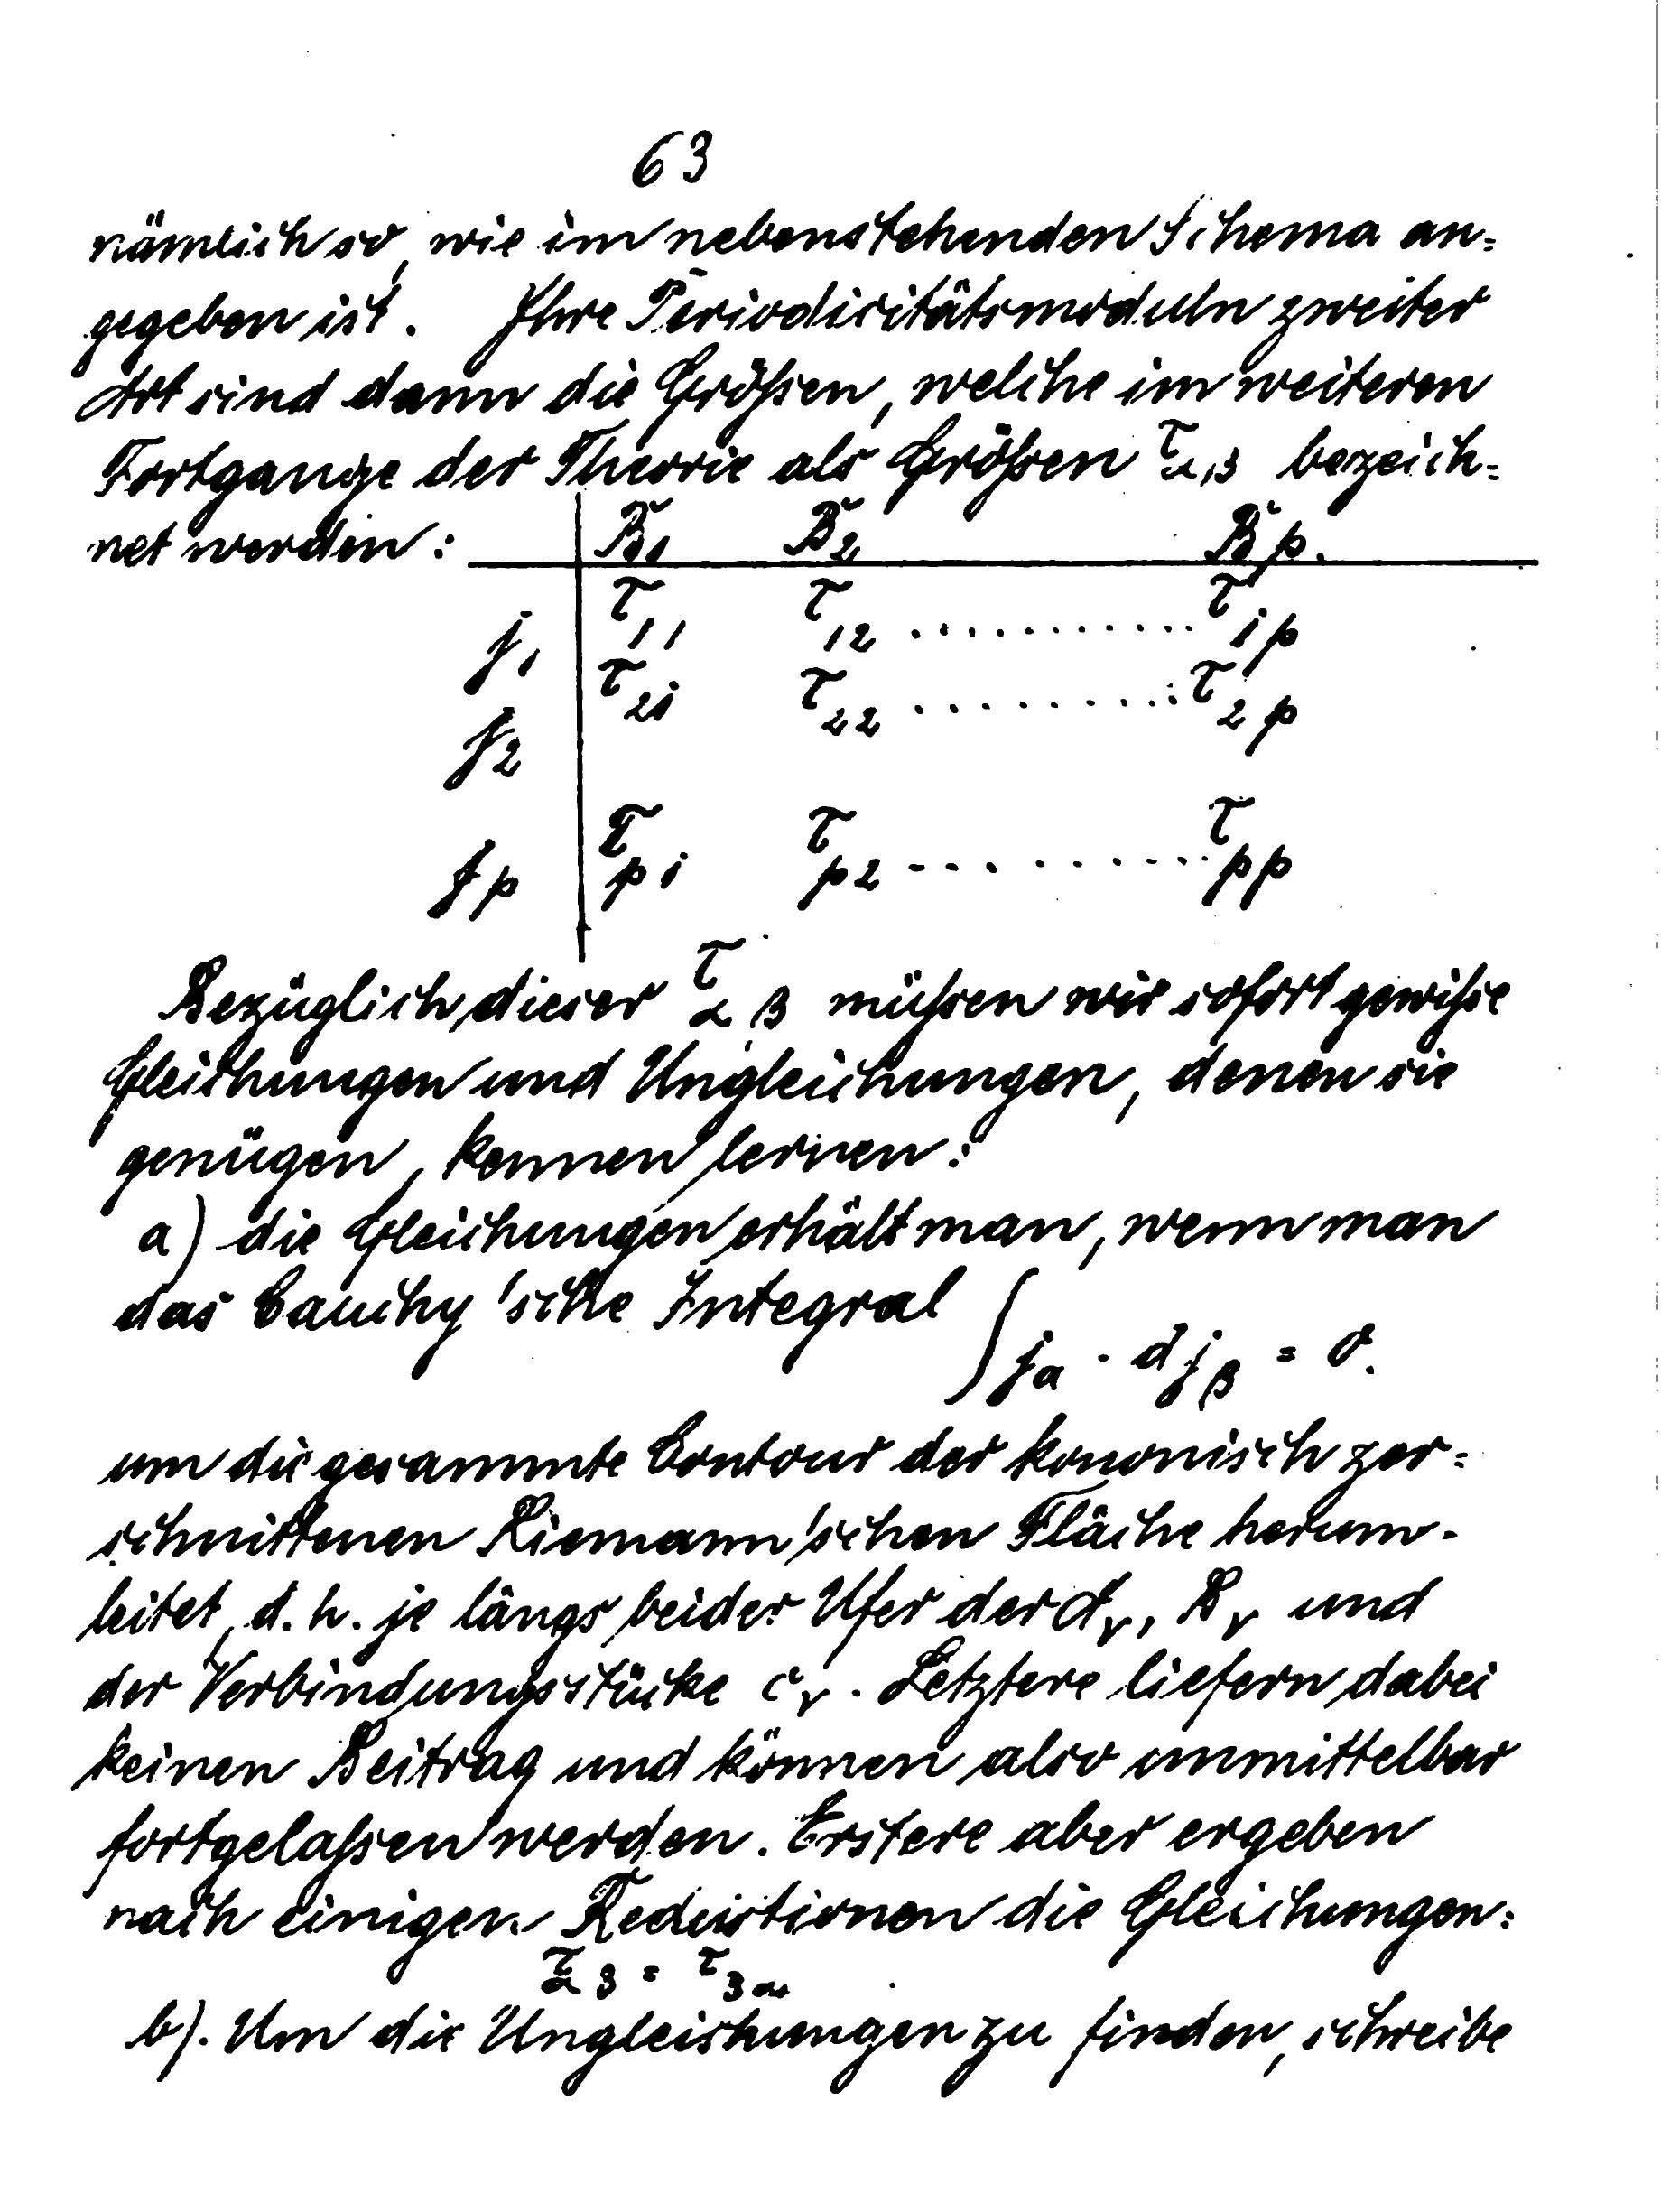 63
nämlich so, wie im nebenstehenden Schema an=
gegeben ist. Ihre Periodicitätsmoduln zweiter
Art sind dann die Größen, welche im weiteren
Fortgange der Theorie als Größen τ_αβ bezeich=
net werden: B₁ B₂ B_p.
j₁ τ₁₁ τ₁₂ ........... τ₁p
j₂ τ₂₁ τ₂₂ ........... τ₂p
j_p τ_p1 τ_p2 ........... τ_pp
Bezüglich dieser τ_αβ müßen wir sofort gewiße
Gleichungen und Ungleichungen, denen sie
genügen, kennen lernen:
a) die Gleichungen erhält man, wenn man
das Cauchy'sche Integral ∫ j_α · d j_β = 0.
um die gesammte Contour der kononisch zer=
schnittenen Riemann'schen Fläche herum-
leitet, d. h. je längs beider Ufer der A_ν, B_ν und
der Verbindungsstücke c_ν. Letztere liefern dabei
keinen Beitrag und können also unmittelbar
fortgelaßen werden. Erstere aber ergeben
nach einigen Reductionen die Gleichungen:
τ_αβ = τ_βα
b). Um die Ungleichungen zu finden, schreibe